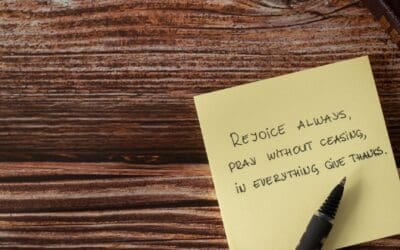 REJOICE ALWAYS,
PRAY WITHOUT CEASING,
IN EVERYTHING GIVE THANKS.